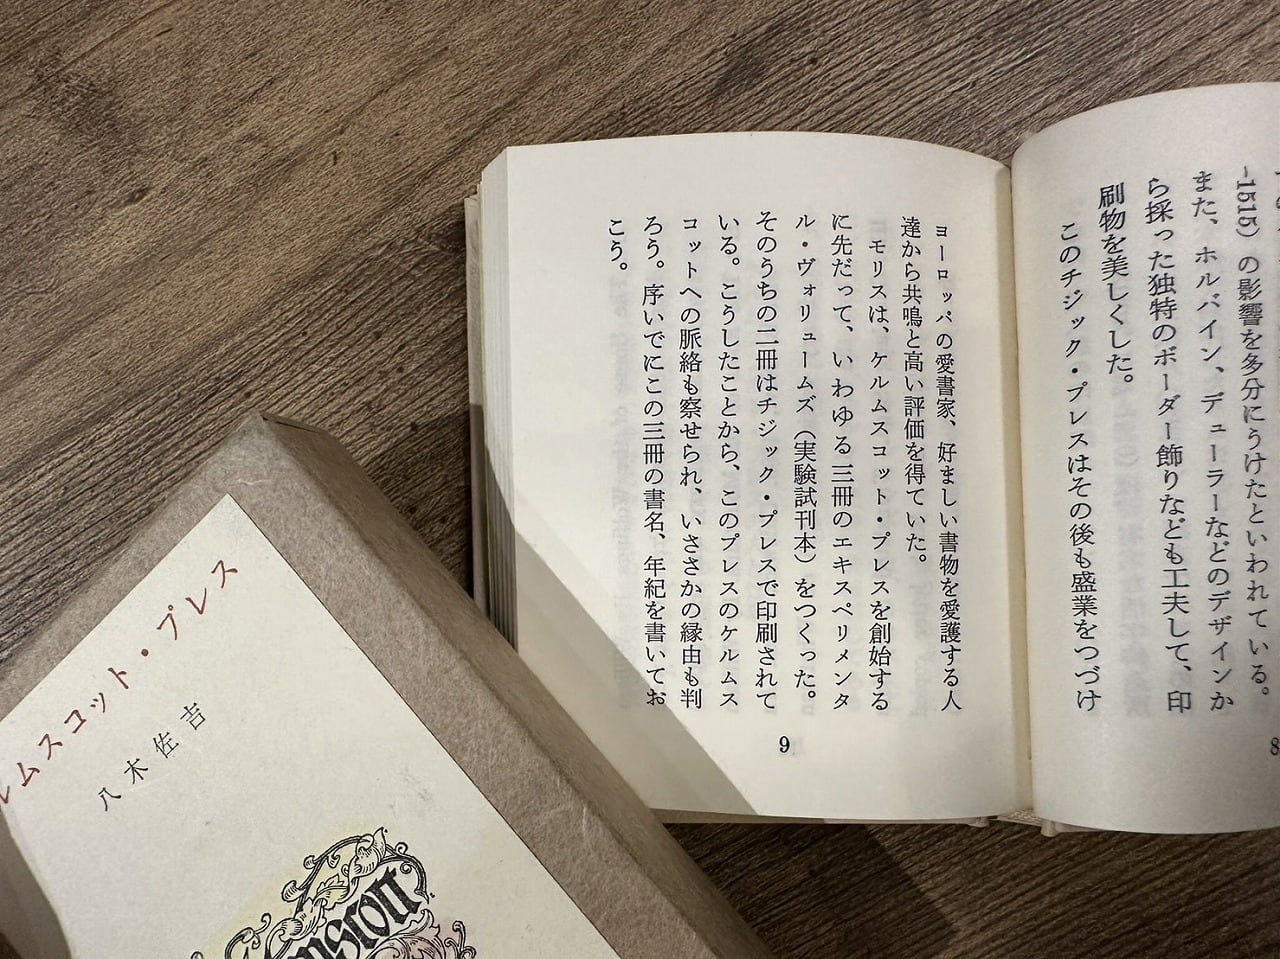 -1515）の影響を多分にうけたといわれている。
また、ホルバイン、デューラーなどのデザインか
ら採った独特のボーダー飾りなども工夫して、印
刷物を美しくした。
このチジック・プレスはその後も盛業をつづけ
8
ヨーロッパの愛書家、好ましい書物を愛護する人
達から共鳴と高い評価を得ていた。
モリスは、ケルムスコット・プレスを創始する
に先だって、いわゆる三冊のエキスペリメンタ
ル・ヴォリュームズ（実験試刊本）をつくった。
そのうちの二冊はチジック・プレスで印刷されて
いる。こうしたことから、このプレスのケルムス
コットへの脈絡も察せられ、いささかの縁由も判
ろう。序いでにこの三冊の書名、年紀を書いてお
こう。
9
ルムスコット・プレス
八木佐吉